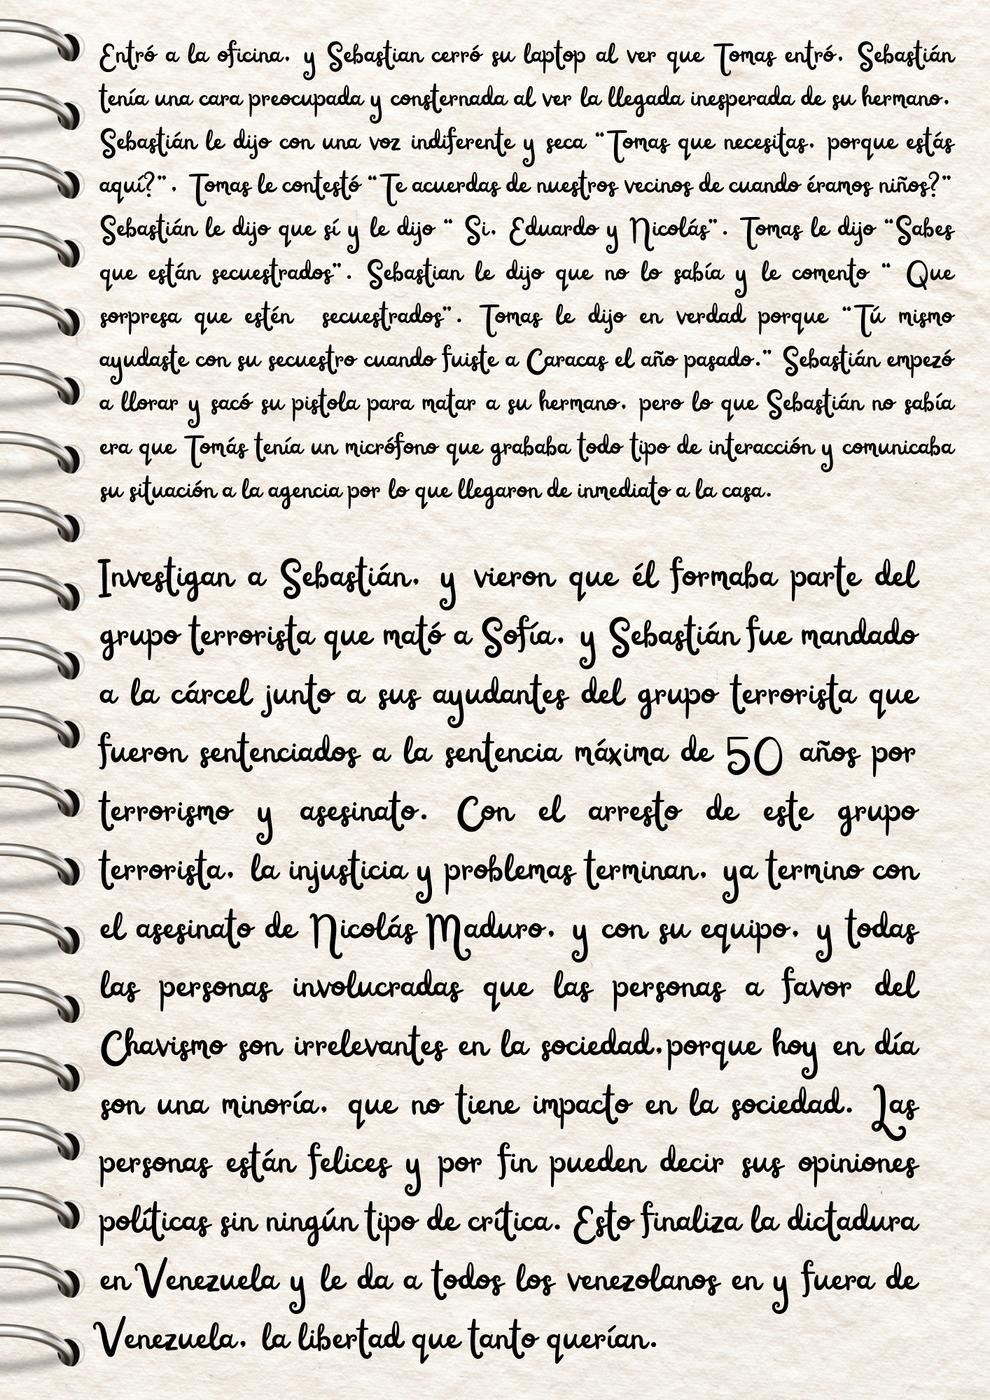 Entró a la oficina, y Sebastian cerró su laptop al ver que Tomas entró. Sebastián
tenía una cara preocupada y consternada al ver la llegada inesperada de su hermano.
Sebastián le dijo con una voz indiferente y seca “Tomas que necesitas, porque estás
aquí?”. Tomas le contestó “Te acuerdas de nuestros vecinos de cuando éramos niños?”
Sebastián le dijo que sí y le dijo “ Si, Eduardo y Nicolás”. Tomas le dijo “Sabes
que están secuestrados”. Sebastian le dijo que no lo sabía y le comento “ Que
sorpresa que estén secuestrados”. Tomas le dijo en verdad porque “Tú mismo
ayudaste con su secuestro cuando fuiste a Caracas el año pasado.” Sebastián empezó
a llorar y sacó su pistola para matar a su hermano, pero lo que Sebastián no sabía
era que Tomás tenía un micrófono que grababa todo tipo de interacción y comunicaba
su situación a la agencia por lo que llegaron de inmediato a la casa.
Investigan a Sebastián, y vieron que él formaba parte del
grupo terrorista que mató a Sofía, y Sebastián fue mandado
a la cárcel junto a sus ayudantes del grupo terrorista que
fueron sentenciados a la sentencia máxima de 50 años por
terrorismo y asesinato. Con el arresto de este grupo
terrorista, la injusticia y problemas terminan, ya termino con
el asesinato de Nicolás Maduro, y con su equipo, y todas
las personas involucradas que las personas a favor del
Chavismo son irrelevantes en la sociedad,porque hoy en día
son una minoría, que no tiene impacto en la sociedad. Las
personas están felices y por fin pueden decir sus opiniones
políticas sin ningún tipo de crítica. Esto finaliza la dictadura
en Venezuela y le da a todos los venezolanos en y fuera de
Venezuela, la libertad que tanto querían.